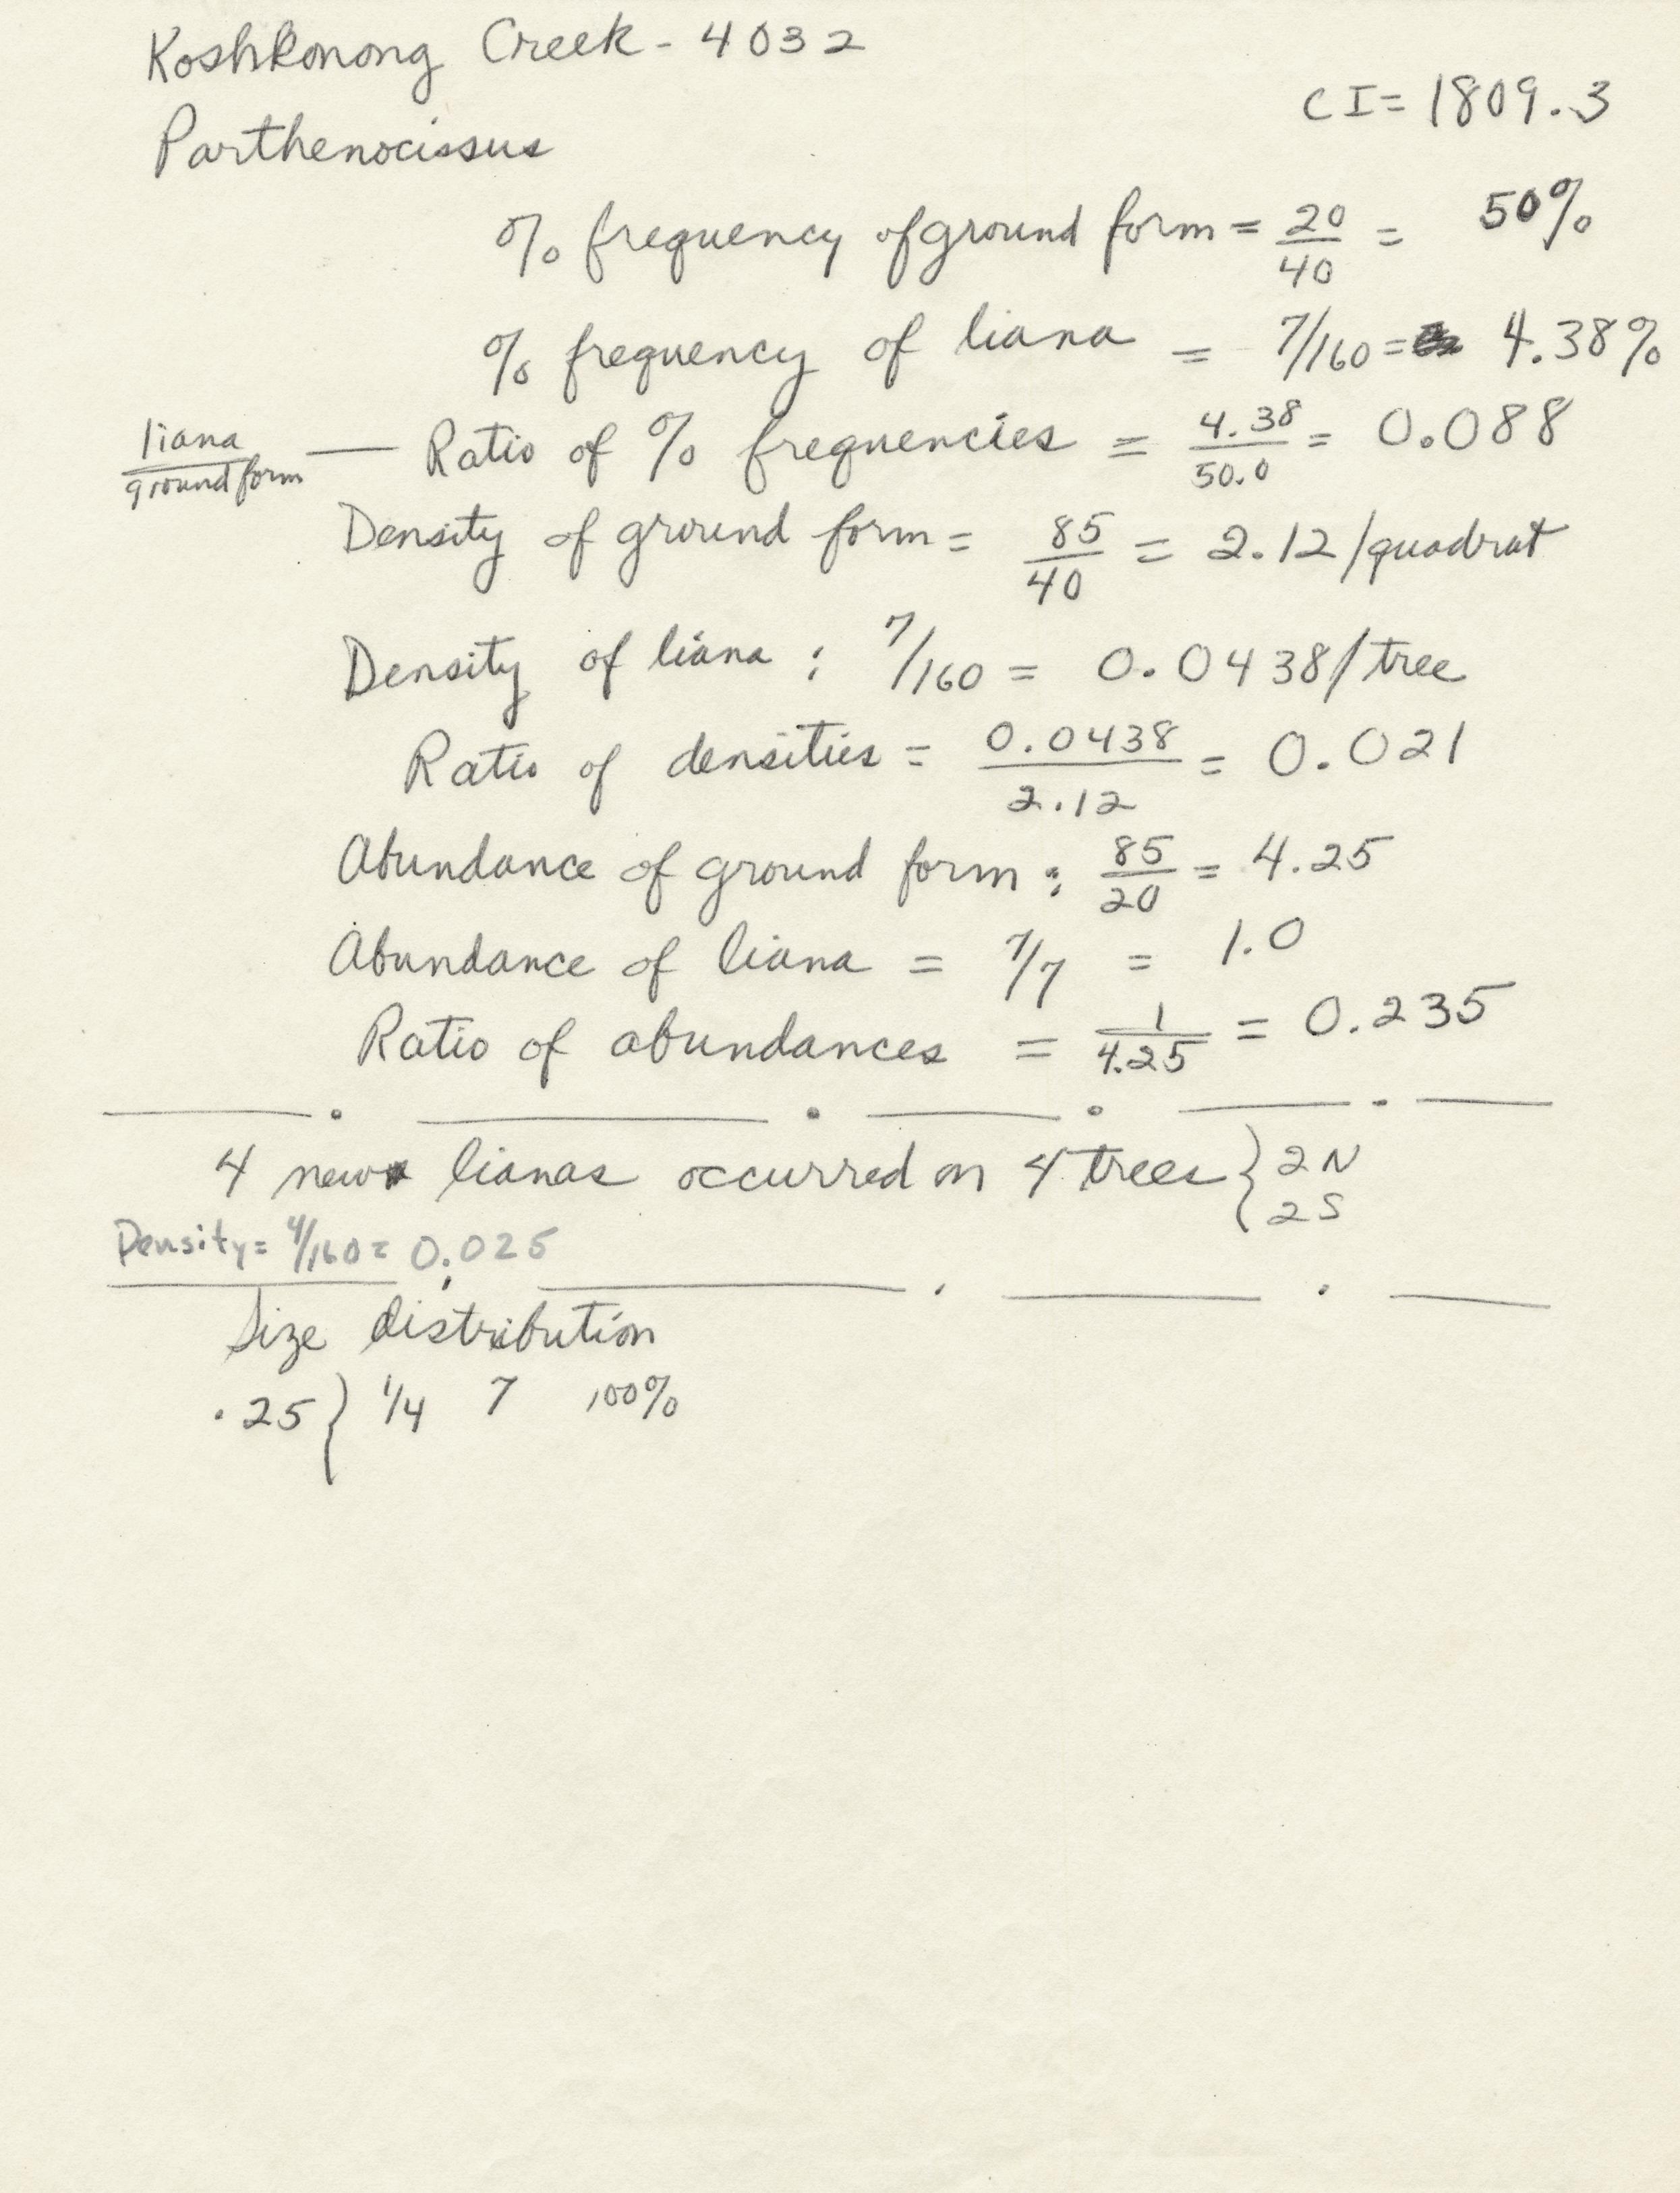 Koshkonong Creek - 4032
CI = 1809.3
Parthenocissus
% frequency of ground form = 20/40 = 50%
% frequency of liana = 7/160 = 4.38%
liana/ground form — Ratio of % frequencies = 4.38/50.0 = 0.088
Density of ground form = 85/40 = 2.12/quadrat
Density of liana : 7/160 = 0.0438/tree
Ratio of densities = 0.0438/2.12 = 0.021
Abundance of ground form : 85/20 = 4.25
Abundance of liana = 7/7 = 1.0
Ratio of abundances = 1/4.25 = 0.235
4 new lianas occurred on 4 trees } 2N
2S
Density = 4/160 = 0.025
Size distribution
.25 } 1/4 7 100%